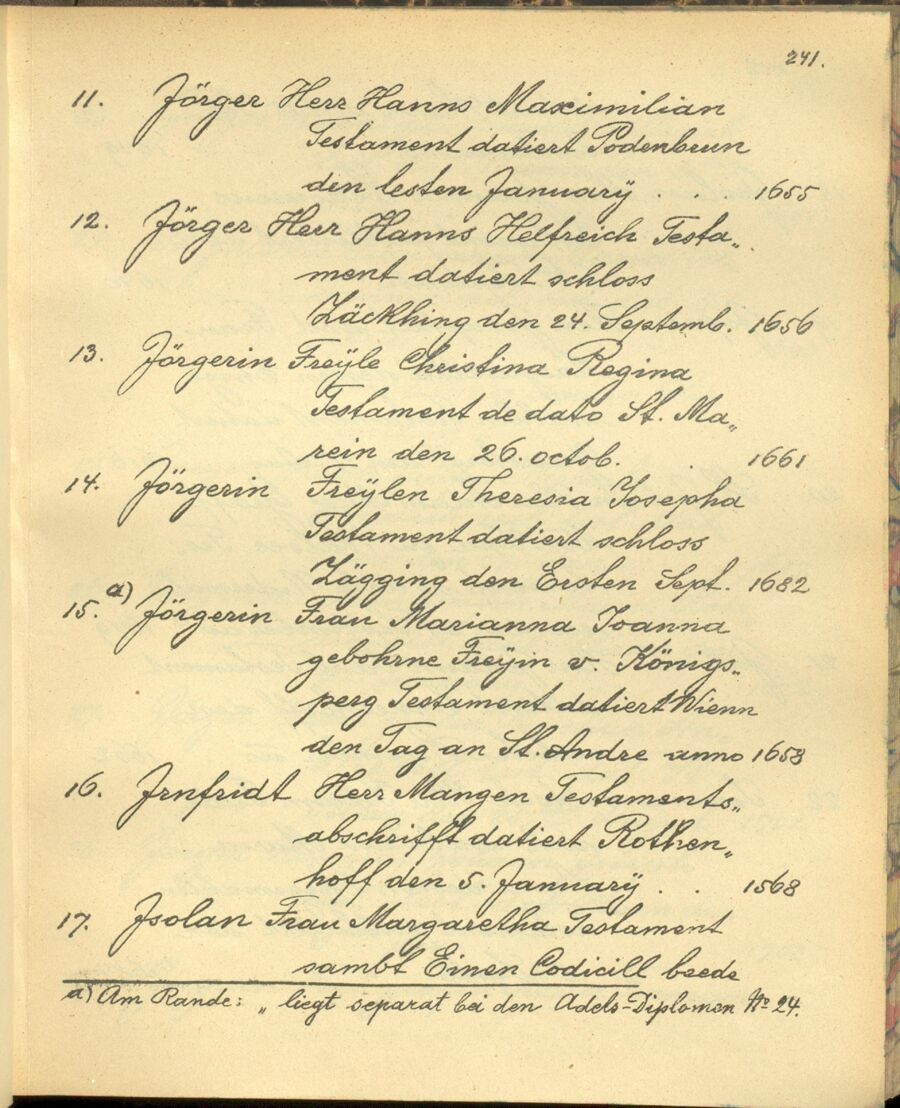 241.
11. Jörger Herr Hanns Maximilian
Testament datiert Podenbrun
den lesten Januarÿ . . . 1655
12. Jörger Herr Hanns Helfreich Testa„
ment datiert schloss
Zäckhing den 24. Septemb. 1656
13. Jörgerin Freÿle Christina Regina
Testament de dato St. Ma„
rein den 26. octob. . 1661
14. Jörgerin Freÿlen Theresia Josepha
Testament datiert schloss
Zägging den Ersten Sept. 1682
15. a) Jörgerin Frau Marianna Joanna
gebohrne Freÿin v. Königs„
perg Testament datiert Wienn
den Tag an St. Andre anno 1658
16. Jrnfridt Herr Mangen Testaments„
abschrifft datiert Rothen„
hoff den 5. Januarÿ . . 1568
17. Jsolan Frau Margaretha Testament
sambt Einen Codicill beede
a) Am Rande: „ liegt separat bei den Adels-Diplomen No 24.